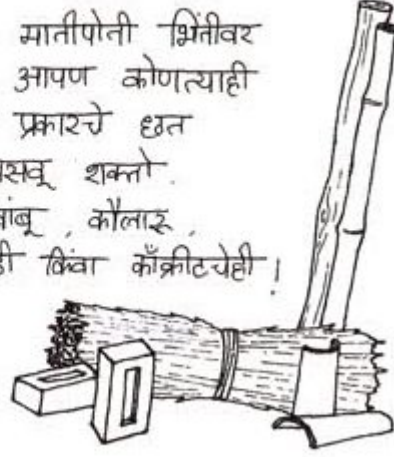 मातीपोती भिंतीवर
आपण कोणत्याही
प्रकारचे छत
शक्तो.
, कौलारू,
किंवा काँक्रीटचेही!